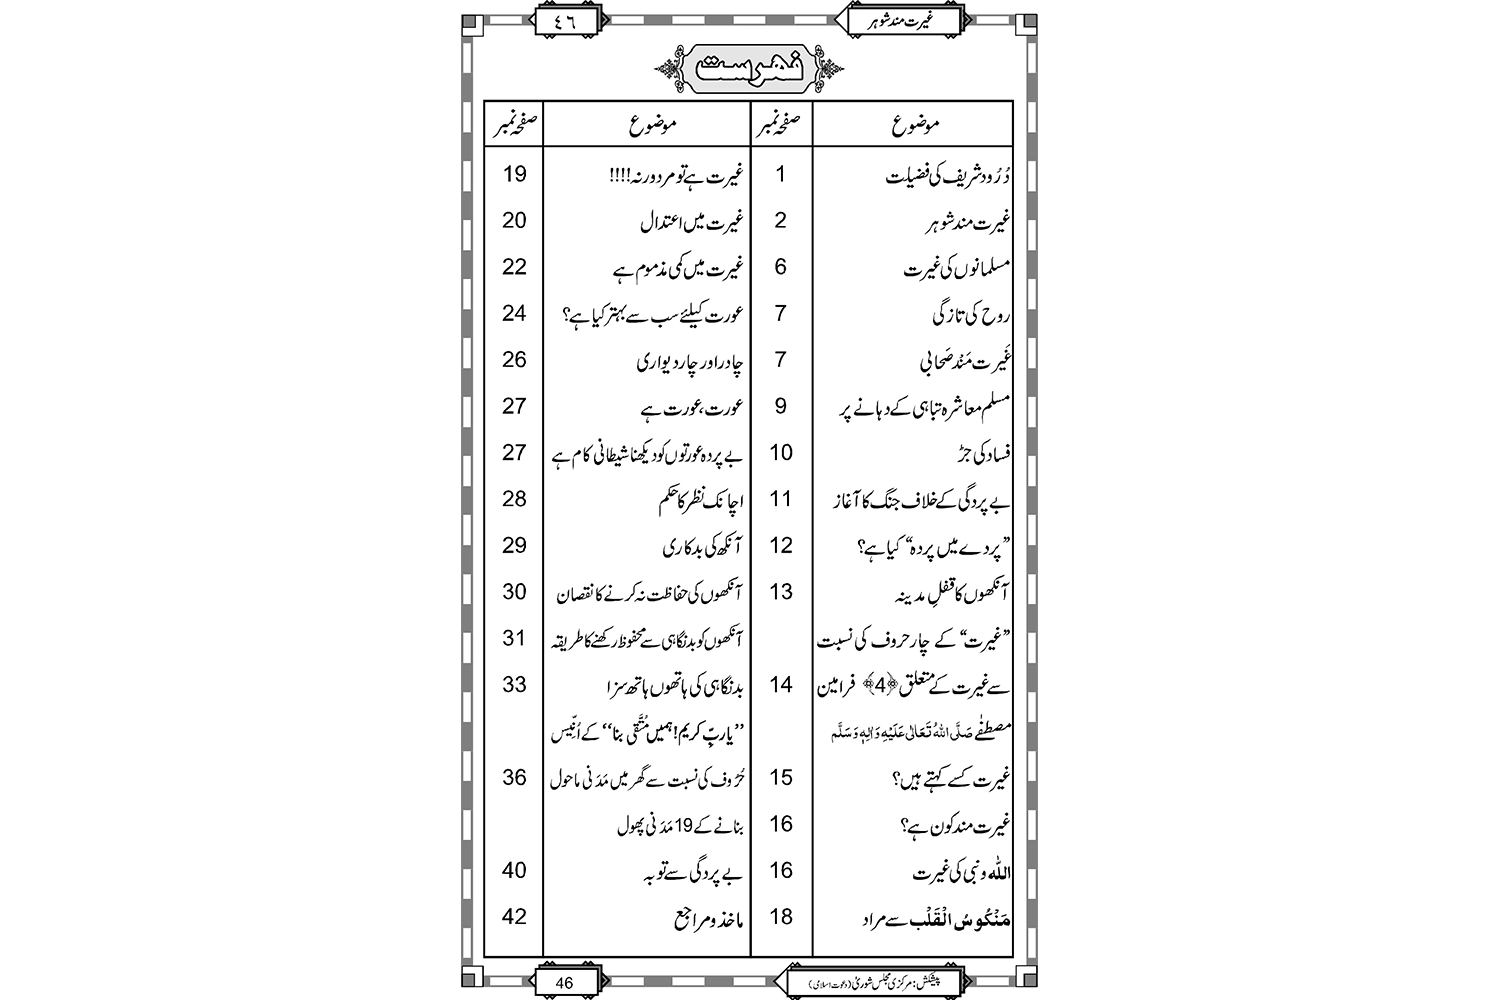 غیرت مند شوہر
٤٦
فہرست
موضوع
صفحہ نمبر
موضوع
صفحہ نمبر
دُرُود شریف کی فضیلت
1
غیرت مند شوہر
2
مسلمانوں کی غیرت
6
روح کی تازگی
7
غَیرت مَنْد صَحابی
7
مسلم معاشرہ تباہی کے دہانے پر
9
فساد کی جڑ
10
بے پردگی کے خلاف جنگ کا آغاز
11
”پردے میں پردہ“ کیا ہے؟
12
آنکھوں کا قفلِ مدینہ
13
”غیرت“ کے چار حروف کی نسبت
سے غیرت کے متعلق ﴿4﴾ فرامین
14
مصطفٰے صَلَّی اللہُ تَعَالٰی عَلَیْہِ وَاٰلِہٖ وَسَلَّم
غیرت کسے کہتے ہیں؟
15
غیرت مند کون ہے؟
16
اللہ و نبی کی غیرت
16
مَنْکُوسُ الْقَلْب سے مراد
18
غیرت ہے تو مرد ورنہ!!!!
19
غیرت میں اعتدال
20
غیرت میں کمی مذموم ہے
22
عورت کیلئے سب سے بہتر کیا ہے؟
24
چادر اور چار دیواری
26
عورت، عورت ہے
27
بے پردہ عورتوں کو دیکھنا شیطانی کام ہے
27
اچانک نظر کا حکم
28
آنکھ کی بدکاری
29
آنکھوں کی حفاظت نہ کرنے کا نقصان
30
آنکھوں کو بدنگاہی سے محفوظ رکھنے کا طریقہ
31
بدنگاہی کی ہاتھوں ہاتھ سزا
33
”یا ربِّ کریم! ہمیں مُتَّقی بنا“ کے اُنّیس
حُرُوف کی نسبت سے گھر میں مَدَنی ماحول
36
بنانے کے 19 مَدَنی پھول
بے پردگی سے توبہ
40
ماخذ و مراجع
42
پیشکش: مرکزی مجلس شوریٰ (دعوت اسلامی)
46